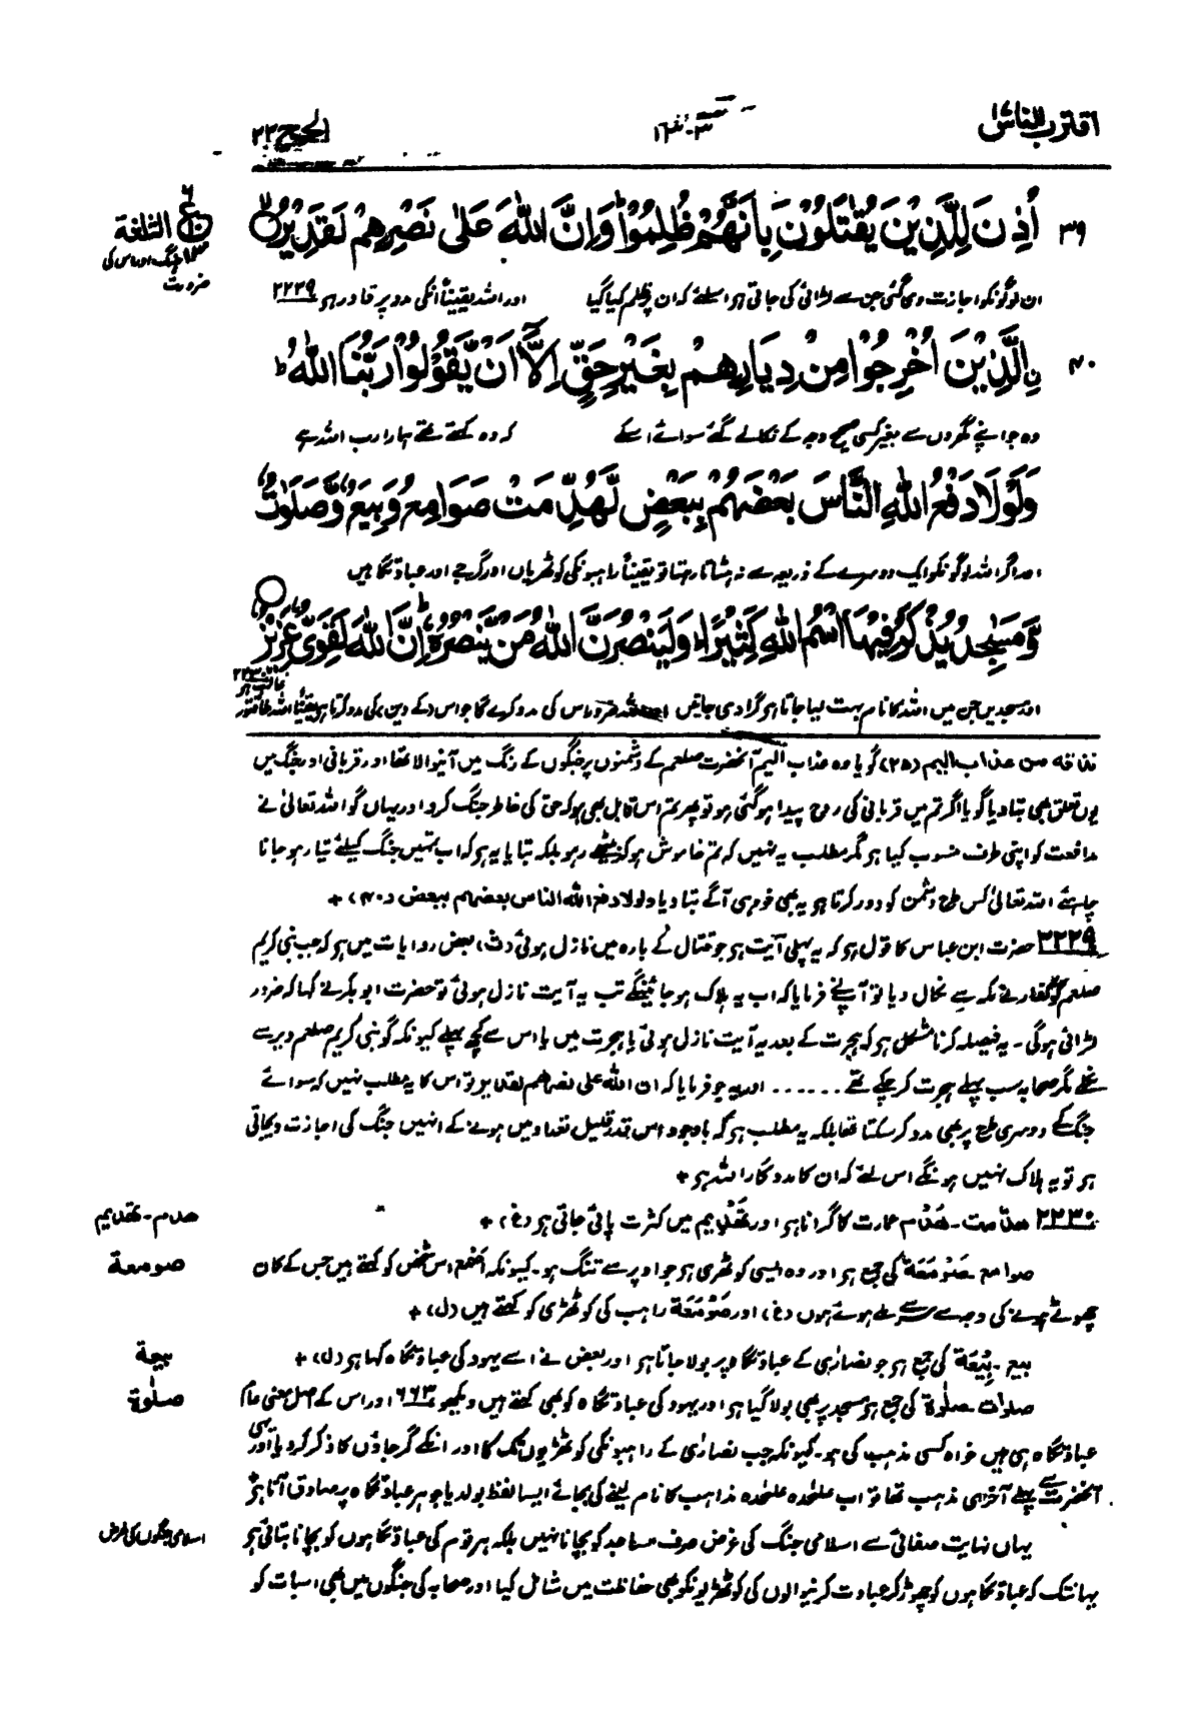 اقترب للناس ۱۷
۱۳۰۳
الحج ۲۲
۳۹ اُذِنَ لِلَّذِيْنَ يُقٰتَلُوْنَ بِاَنَّهُمْ ظُلِمُوْا ؕ وَاِنَّ اللّٰهَ عَلٰى نَصْرِهِمْ لَقَدِيْرُ
الثلثة
جنگ اور اس کی
ضرورت
ان لوگونکو اجازت دی گئی جن سے لڑائی کی جاتی ہو اسلئے کہ ان پر ظلم کیا گیا اور اللہ یقیناً انکی مدد پر قادر ہو ۲۲۲۹
۴۰ ۨالَّذِيْنَ اُخْرِجُوْا مِنْ دِيَارِهِمْ بِغَيْرِ حَقٍّ اِلَّاۤ اَنْ يَّقُوْلُوْا رَبُّنَا اللّٰهُ ؕ
وہ جو اپنے گھروں سے بغیر کسی صحیح وجہ کے نکالے گئے سوائے اسکے کہ وہ کہتے تھے ہمارا رب اللہ ہے
وَلَوْلَا دَفْعُ اللّٰهِ النَّاسَ بَعْضَهُمْ بِبَعْضٍ لَّهُدِّمَتْ صَوَامِعُ وَبِيَعٌ وَّصَلَوٰتٌ
اور اگر اللہ لوگونکو ایک دوسرے کے ذریعہ سے نہ ہٹاتا رہتا تو یقیناً راہبونکی کوٹھریاں اور گرجے اور عبادتگاہیں
وَّمَسٰجِدُ يُذْكَرُ فِيْهَا اسْمُ اللّٰهِ كَثِيْرًا ؕ وَلَيَنْصُرَنَّ اللّٰهُ مَنْ يَّنْصُرُهٗ ؕ اِنَّ اللّٰهَ لَقَوِىٌّ عَزِيْزٌ
اور مسجدیں جن میں اللہ کا نام بہت لیا جاتا ہو گرا دی جاتیں اور اللہ ضرور اس کی مدد کرے گا جو اس (کے دین) کی مدد کرتا ہو یقیناً اللہ طاقتور
غالب ہو ۲۲۳۰
نذقه من عذاب الیم (۲۵) گویا وہ عذاب الیم آنحضرت صلعم کے دشمنوں پر جنگوں کے رنگ میں آنیوالا تھا اور قربانی اور جنگ میں
یوں تعلق بھی بتا دیا گویا اگر تم میں قربانی کی روح پیدا ہو گئی ہو تو پھر تم اس قابل بھی ہو کہ حق کی خاطر جنگ کرو اور یہاں گو اللہ تعالیٰ نے
مدافعت کو اپنی طرف منسوب کیا ہو مگر مطلب یہ نہیں کہ تم خاموش ہو کر بیٹھے رہو بلکہ بتایا یہ ہو کہ اب تمہیں جنگ کیلئے تیار ہو جانا
چاہئے اللہ تعالیٰ کس طرح دشمن کو دور کرتا ہو یہ بھی خود ہی آگے بتا دیا ولولا دفع اللہ الناس بعضھم ببعض (۴۰) +
۲۲۲۹ حضرت ابن عباس کا قول ہو کہ یہ پہلی آیت ہو جو قتال کے بارہ میں نازل ہوئی (ث) بعض روایات میں ہو کہ جب نبی کریم
صلعم کو کفار نے مکہ سے نکال دیا تو آپنے فرمایا کہ اب یہ ہلاک ہو جائینگے تب یہ آیت نازل ہوئی تو حضرت ابو بکر نے کہا کہ ضرور
لڑائی ہو گی ۔ یہ فیصلہ کرنا مشکل ہو کہ ہجرت کے بعد یہ آیت نازل ہوئی یا ہجرت میں یا اس سے کچھ پہلے کیونکہ گو نبی کریم صلعم دیر سے
نکلے مگر صحابہ سب پہلے ہجرت کر چکے تھے ...... اور یہ جو فرمایا کہ ان اللہ علی نصرھم لقدیر تو اس کا یہ مطلب نہیں کہ سوائے
جنگ کے دوسری طرح پر بھی مدد کر سکتا تھا بلکہ یہ مطلب ہو کہ باوجود اس قدر قلیل تعداد میں ہونے کے انہیں جنگ کی اجازت دیجاتی
ہو تو یہ ہلاک نہیں ہونگے اس لئے کہ ان کا مددگار اللہ ہو +
۲۲۳۰ ھدمت ۔ ھَدْم عمارت کا گرانا ہو اور تَھْدِیم میں کثرت پائی جاتی ہو (غ) +
ھدم ۔ تھدیم
صوامع صَوْمَعَة کی جمع ہو اور وہ ایسی کوٹھری ہو جو اوپر سے تنگ ہو ۔ کیونکہ اَصْمَع اس شخص کو کہتے ہیں جس کے کان
صومعة
چھوٹے ہونے کی وجہ سے سر سے ملے ہوئے ہوں (غ) اور صَوْمَعَة راہب کی کوٹھڑی کو کہتے ہیں (ل) +
بیع ۔ بِیْعَة کی جمع ہو جو نصاریٰ کے عبادتگاہ پر بولا جاتا ہو اور بعض نے اسے یہود کی عبادتگاہ کہا ہو (ل) +
بیعة
صلوات صلٰوة کی جمع ہو مسجد پر بھی بولا گیا ہو اور یہود کی عبادتگاہ کو بھی کہتے ہیں دیکھو ۶۶۳ اور اس کے اصل معنی عام
صلٰوة
عبادتگاہ ہی ہیں خواہ کسی مذہب کی ہو ۔ کیونکہ جب نصاریٰ کے راہبونکی کوٹھڑیوں تک کا اور انکے گرجاؤں کا ذکر کر دیا اور یہی
آنحضرت سے پہلے آخری مذہب تھا تو اب علٰحدہ علٰحدہ مذاہب کا نام لینے کی بجائے ایسا لفظ بولدیا جو ہر عبادتگاہ پر صادق آتا ہو
یہاں نہایت صفائی سے اسلامی جنگ کی غرض صرف مساجد کو بچانا نہیں بلکہ ہر قوم کی عبادتگاہوں کو بچانا بتائی ہو
اسلامی جنگوں کی غرض
یہانتک کہ عبادتگاہوں کو چھوڑ کر عبادت کرنیوالوں کی کوٹھڑیونکو بھی حفاظت میں شامل کیا اور صحابہ کی جنگوں میں بھی اسبات کو